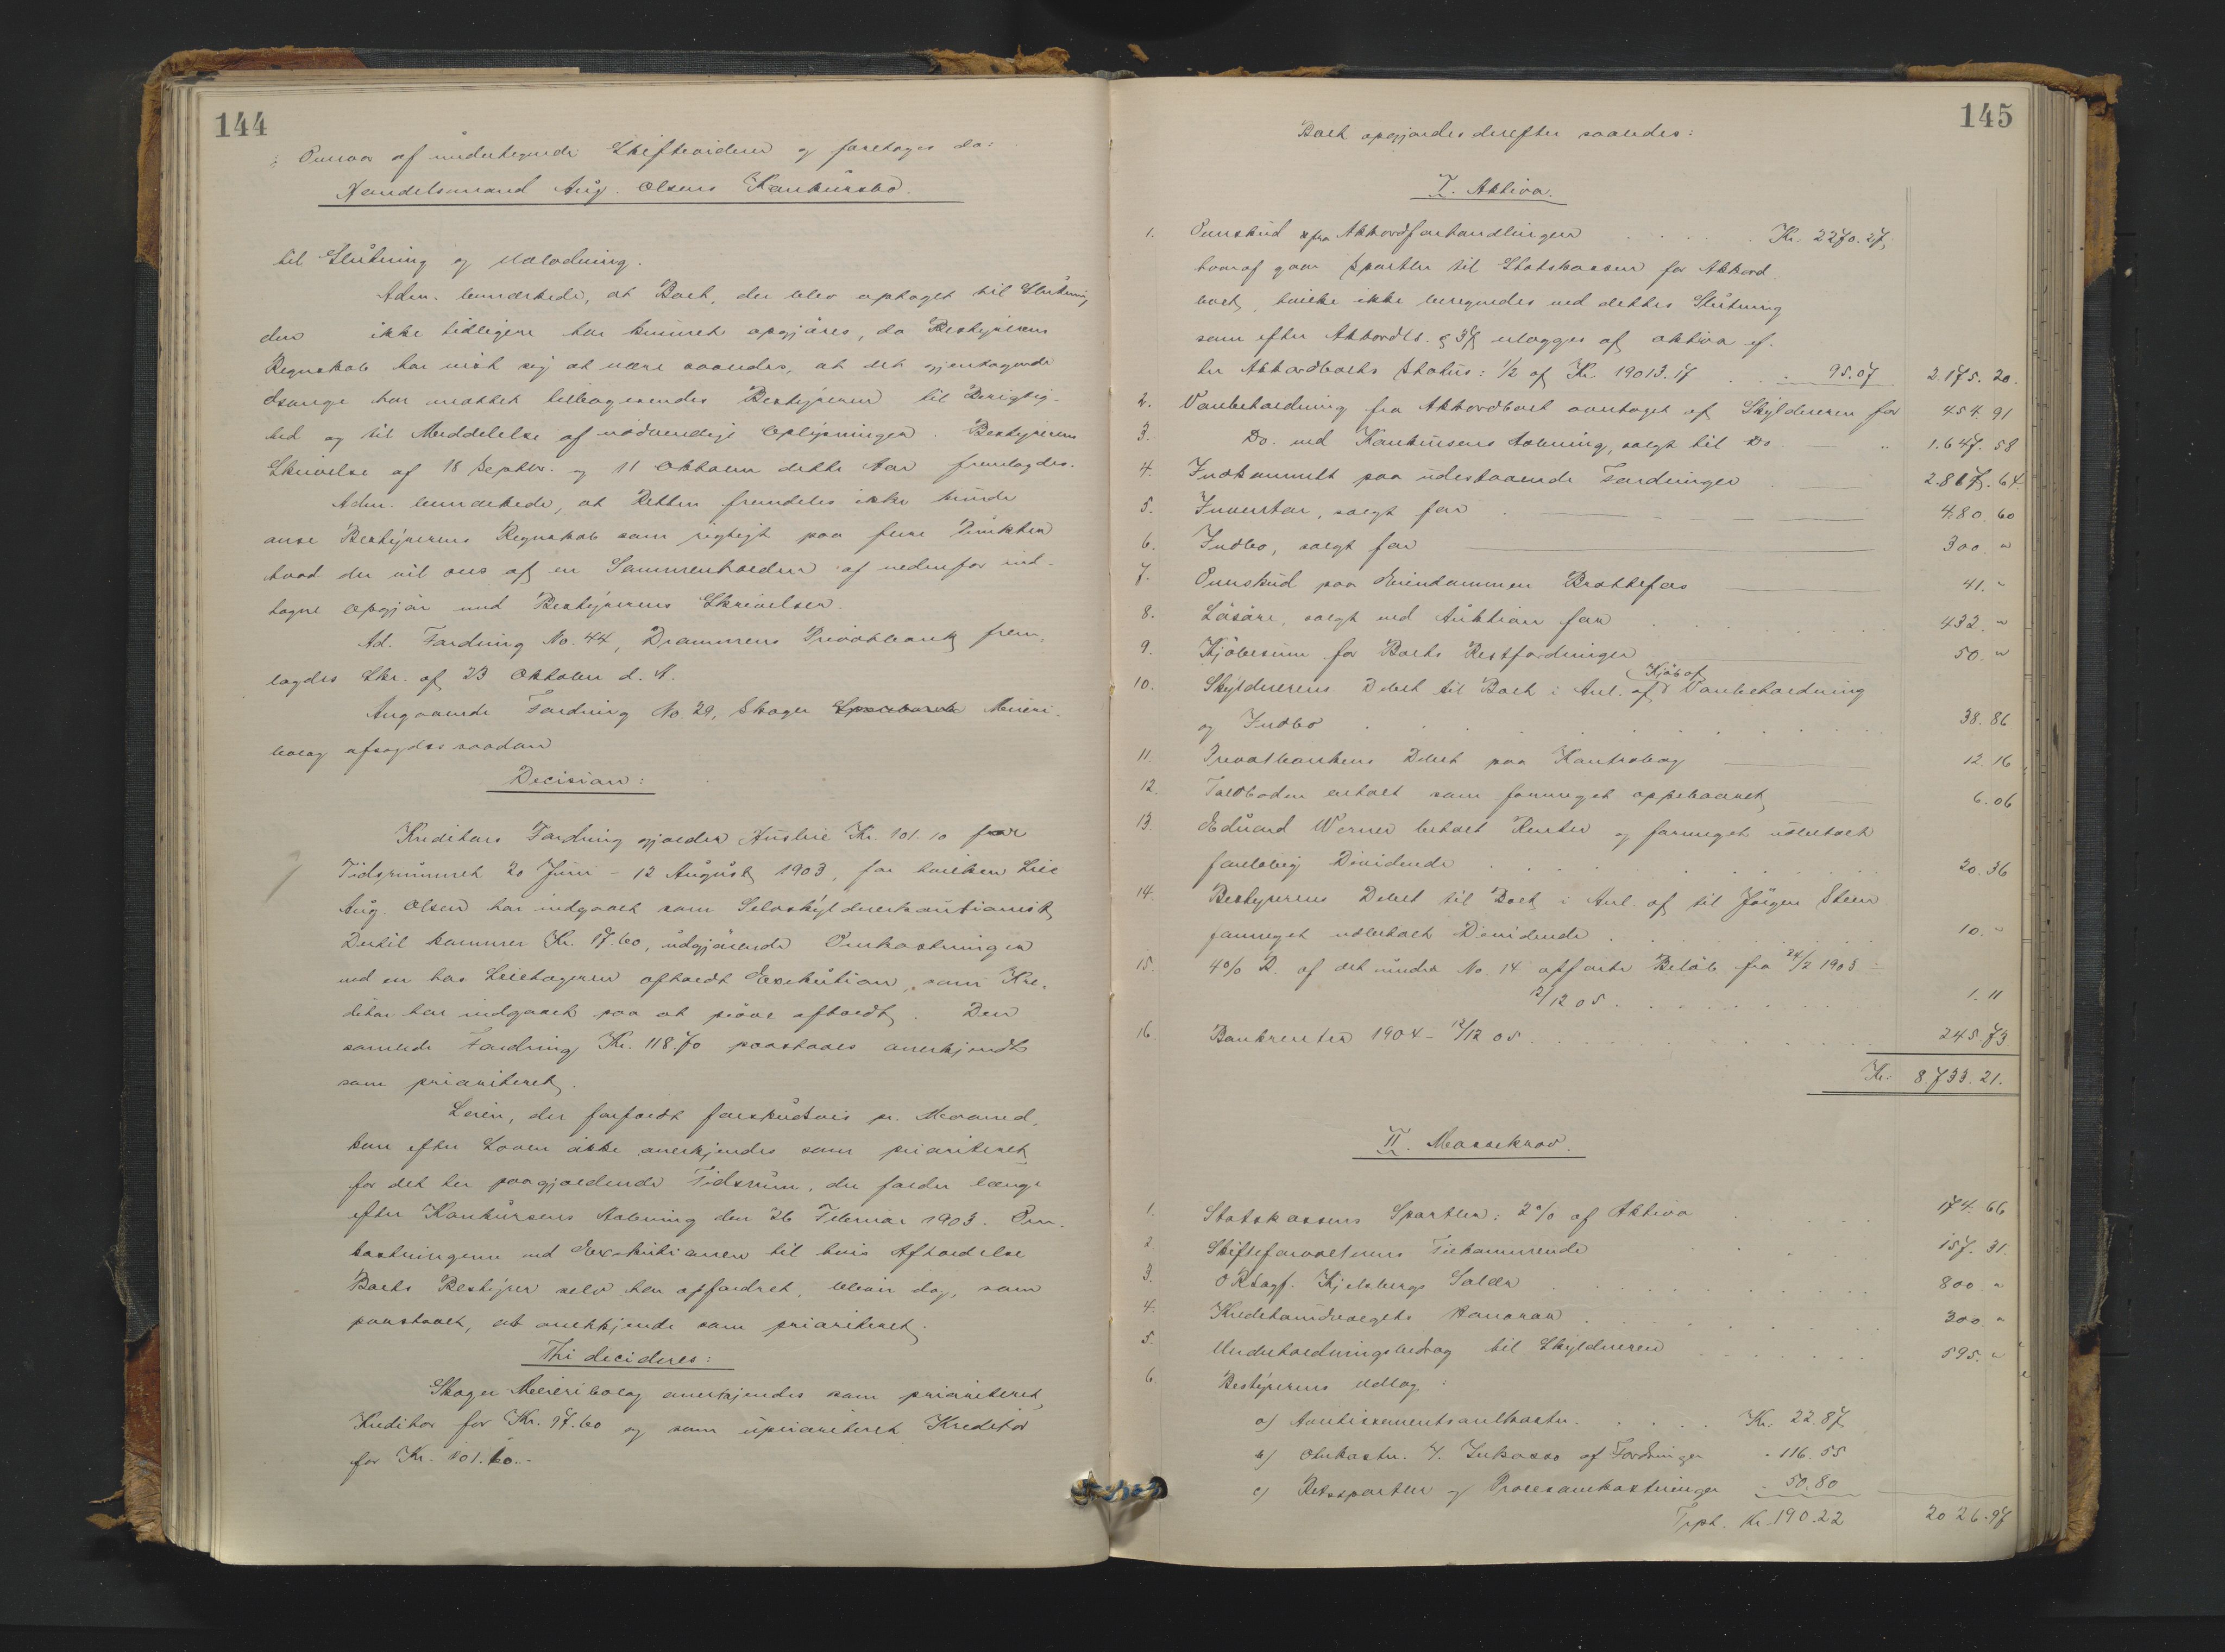 144
Ovenover af undertegnede Skifteviderer og foretoges da:
Handelsmand Aug. Olsens Konkursbo.
til Slutning og Udlodning.
Adm. bemærkede, at Boet, der blev optaget til Slutning
den ikke tidligere har kunnet opgjøres, da Bestyrerens
Regnskab har vist sig at være saaledes, at det gjentagende
Gange har maattet tilbagesendes Bestyreren til Berigtig-
hed og til Meddelelse af nödvendige Oplysninger. Bestyrerens
Skrivelse af 18 Septbr. og 11 Oktober dette Aar fremlagdes.
Adm. bemærkede, at Retten fremdeles ikke kunde
anse Bestyrerens Regnskab som rigtigt paa flere Punkter
hvad der vil sees af en Sammenholden af nedenfor ind-
tagne Opgjör med Bestyrerens Skrivelser.
Ad. Fordring No. 44, Drammens Privatbank, frem-
lagdes Skr. af 23 Oktober d. A.
Angaaende Fordring No. 29, Skoger Meieri-
bolag afsagdes saadan
Decision:
Kreditors Fordring gjælder Husleie Kr. 101.10 for
Tidsrummet 20 Juni - 12 August 1903, for hvilken Leie
Aug. Olsen har indgaaet som Selvskyldnerkautionist,
Dertil kommer Kr. 17.60, udgjørende Omkostninger
ved en hos Leietageren afholdt Exekution, som Kre-
ditor har indgaaet paa at prøve afholdt. Den
samlede Fordring Kr. 118.70 paastaaes anerkjendt
som prioriteret.
Leien, der forfaldt forskudsvis pr. Maaned,
kan efter Loven ikke anerkjendes som prioriteret
for det her paagjældende Tidsrum, der falder længe
efter Konkursens Aabning den 26 Februar 1903. Om-
kostningerne ved Exekutionen til hvis Afholdelse
Boets Bestyrer selv har opfordret, bliver dog, som
paastaaet, at anerkjende som prioriteret.
Thi decideres:
Skoger Meieribolag anerkjendes som prioriteret
Kreditor for Kr. 17.60 og som uprioriteret Kreditor
for Kr. 101.10.-
145
Boet opgjordes derefter saaledes:
I. Aktiva.
1. Overskud fra Akkordforhandlingen . . . . Kr. 2270.27,
hvoraf gaar Sportler til Statskassen for Akkord-
boet, hvilke ikke beregnedes ved dettes Slutning
som efter Akkordls. § 37 erlægges af aktiva ef-
ter Akkordboets Status: 1/2 af Kr. 19013.17 . . 95.07 2.175.20.
2. Varebeholdning fra Akkordboet overtaget af Skyldneren for 454.91
3. Do. ved Konkursens Aabning, solgt til Do. 1.647.58
4. Indkommet paa udestaaende Fordringer 2.817.64
5. Inventar, solgt for 480.60
6. Indbo, solgt for 300. "
7. Overskud paa Eiendommen Brattefos 41. "
8. Lösöre, solgt ved Auktion for 432. "
9. Kjöbesum for Boets Restfordringer 50. "
10. Skyldnerens Debet til Boet i Anl. af Kjöb af Varebeholdning
og Indbo 38.86
11. Privatbankens Debet paa Kontrabog 12.16
12. Toldboden erholt som formeget oppebaaret 6.06
13. Eduard Werner betalt Renter og formeget udbetalt
foreløbig Dividende 20.36
14. Bestyrerens Debet til Boet i Anl. af til Jörgen Steen
formeget udbetalt Dividende 10. "
15. 4% R. af det under No. 14 opförte Beløb fra 24/2 1903 -
12/12 05 1.11
16. Bankrenter 1904 - 12/12 05 245.73
Kr. 8.733.21.
II. Massekrav.
1. Statskassens Sportler: 2% af Aktiva 174.66
2. Skifteforvalterens Tilkommende 157.31.
3. ORsagf. Kjelsbergs Salær 800 "
4. Kreditorudvalgets Honorar 300. "
5. Underholdningsbidrag til Skyldneren 595. "
6. Bestyrerens Udlæg:
a) Avertissementsomkostn. Kr. 22.87
b) Omkostn. v. Inkasso af Fordringer " 116.55
c) Retssportler og Procesomkostninger - 50.80
Trpt. Kr. 190.22 2026.97